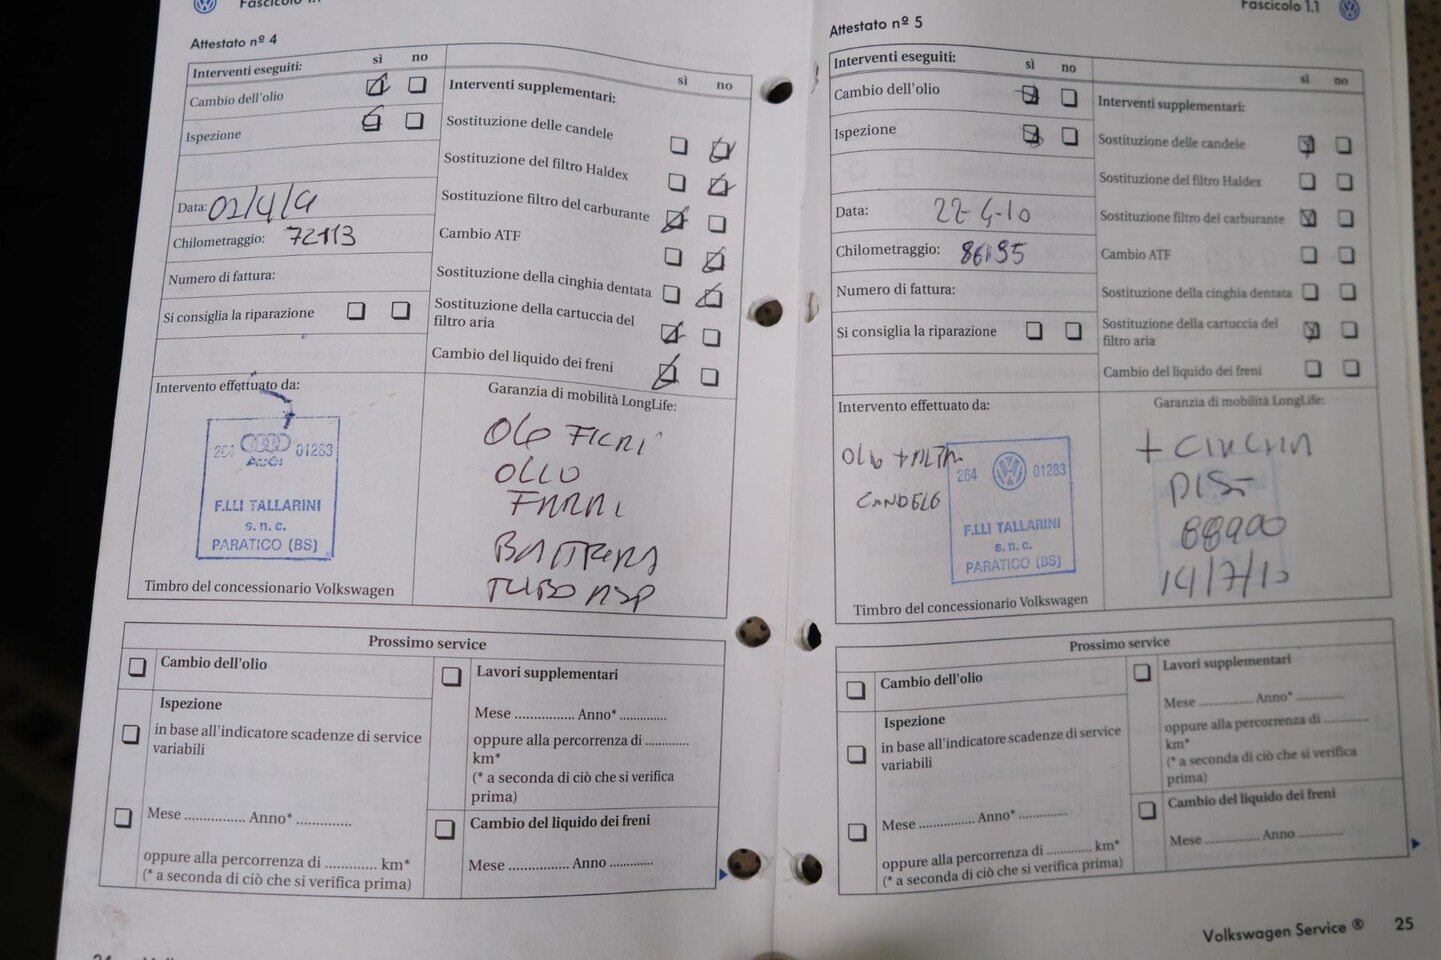 Fascicolo 1.1
Attestato nº 4
Interventi eseguiti: sì no
Cambio dell'olio
Ispezione
Data: 02/4/9
Chilometraggio: 72113
Numero di fattura:
Si consiglia la riparazione
sì no
Interventi supplementari:
Sostituzione delle candele
Sostituzione del filtro Haldex
Sostituzione filtro del carburante
Cambio ATF
Sostituzione della cinghia dentata
Sostituzione della cartuccia del
filtro aria
Cambio del liquido dei freni
Intervento effettuato da:
264 Audi 01283
F.LLI TALLARINI
s.n.c.
PARATICO (BS)
Timbro del concessionario Volkswagen
Garanzia di mobilità LongLife:
OLIO
Prossimo service
Cambio dell'olio
Ispezione
in base all'indicatore scadenze di service
variabili
Mese ................ Anno* ..............
oppure alla percorrenza di ............ km*
(* a seconda di ciò che si verifica prima)
Lavori supplementari
Mese ................ Anno* .............
oppure alla percorrenza di ............
km*
(* a seconda di ciò che si verifica
prima)
Cambio del liquido dei freni
Mese ................ Anno ............
Fascicolo 1.1
Attestato nº 5
Interventi eseguiti: sì no
Cambio dell'olio
Ispezione
Data: 22-4-10
Chilometraggio: 86195
Numero di fattura:
Si consiglia la riparazione
sì no
Interventi supplementari:
Sostituzione delle candele
Sostituzione del filtro Haldex
Sostituzione filtro del carburante
Cambio ATF
Sostituzione della cinghia dentata
Sostituzione della cartuccia del
filtro aria
Cambio del liquido dei freni
Intervento effettuato da:
CANDELE
264 01283
F.LLI TALLARINI
s.n.c.
PARATICO (BS)
Timbro del concessionario Volkswagen
Garanzia di mobilità LongLife:
88900
14/7/10
Prossimo service
Cambio dell'olio
Ispezione
in base all'indicatore scadenze di service
variabili
Mese ................ Anno* ..............
oppure alla percorrenza di ............ km*
(* a seconda di ciò che si verifica prima)
Lavori supplementari
Mese ................ Anno* .............
oppure alla percorrenza di ............
km*
(* a seconda di ciò che si verifica
prima)
Cambio del liquido dei freni
Mese ................ Anno ............
Volkswagen Service ® 25